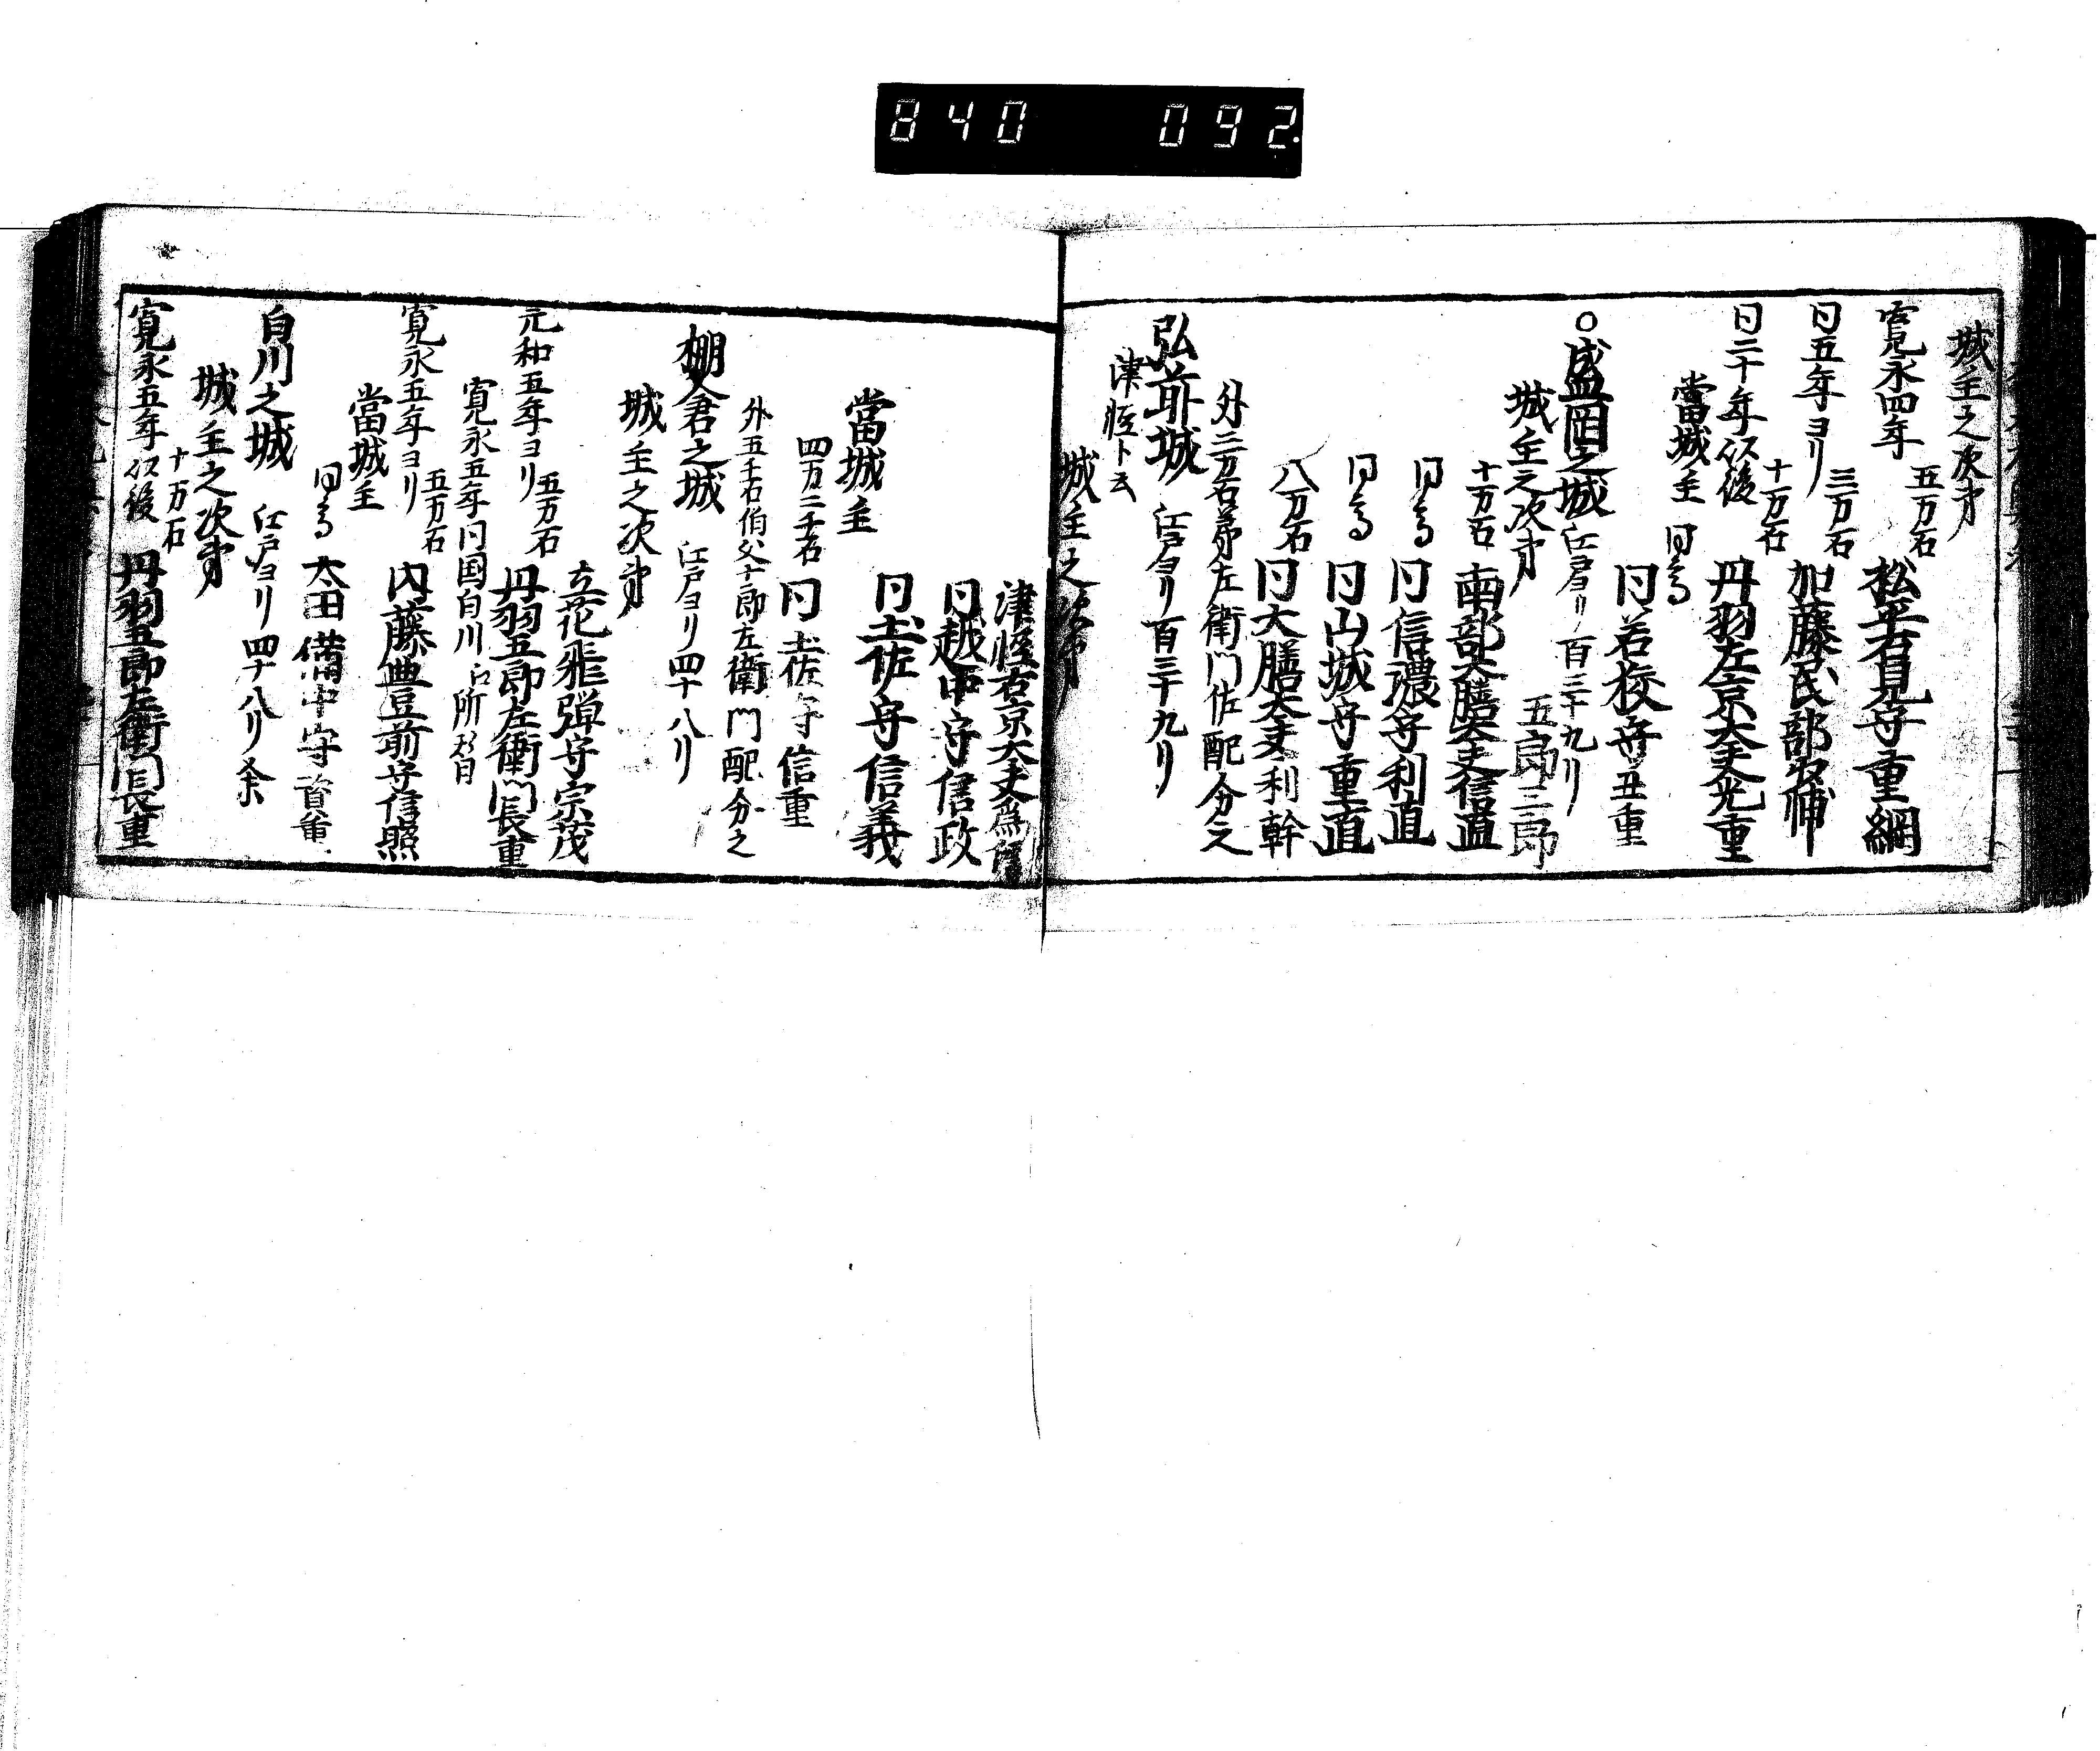 840 092
城主之次才
寛永四年 五万石 松平石見守重綱
同五年ヨリ 三万石 加藤民部少輔
同二十年以後 十万石 丹羽左京大夫光重
當城主 同高 同若狭守丑重
○盛岡之城 江戸ヨリ百三十九リ
城主之次才 五郎三郎
十万石 南部大膳大夫信直
同高 同信濃守利直
同高 同山城守重直
八万石 同大膳大夫利幹
外二万石弟左衛門佐配分之
弘前城 江戸ヨリ百三十九リ
津軽ト云
城主之次第
津軽右京大夫為信
同越中守信政
同土佐守信義
當城主
四万二千石 同土佐守信重
外五千石伯父十郎左衛門配分之
棚倉之城 江戸ヨリ四十八リ
城主之次第
立花飛弾守宗茂
元和五年ヨリ 五万石 丹羽五郎左衛門長重
寛永五年同国白川江所替
寛永五年ヨリ 五万石 内藤豊前守信照
當城主
同高 太田備中守資重
白川之城 江戸ヨリ四十八リ余
城主之次第
寛永五年以後 十万石 丹羽五郎左衛門長重